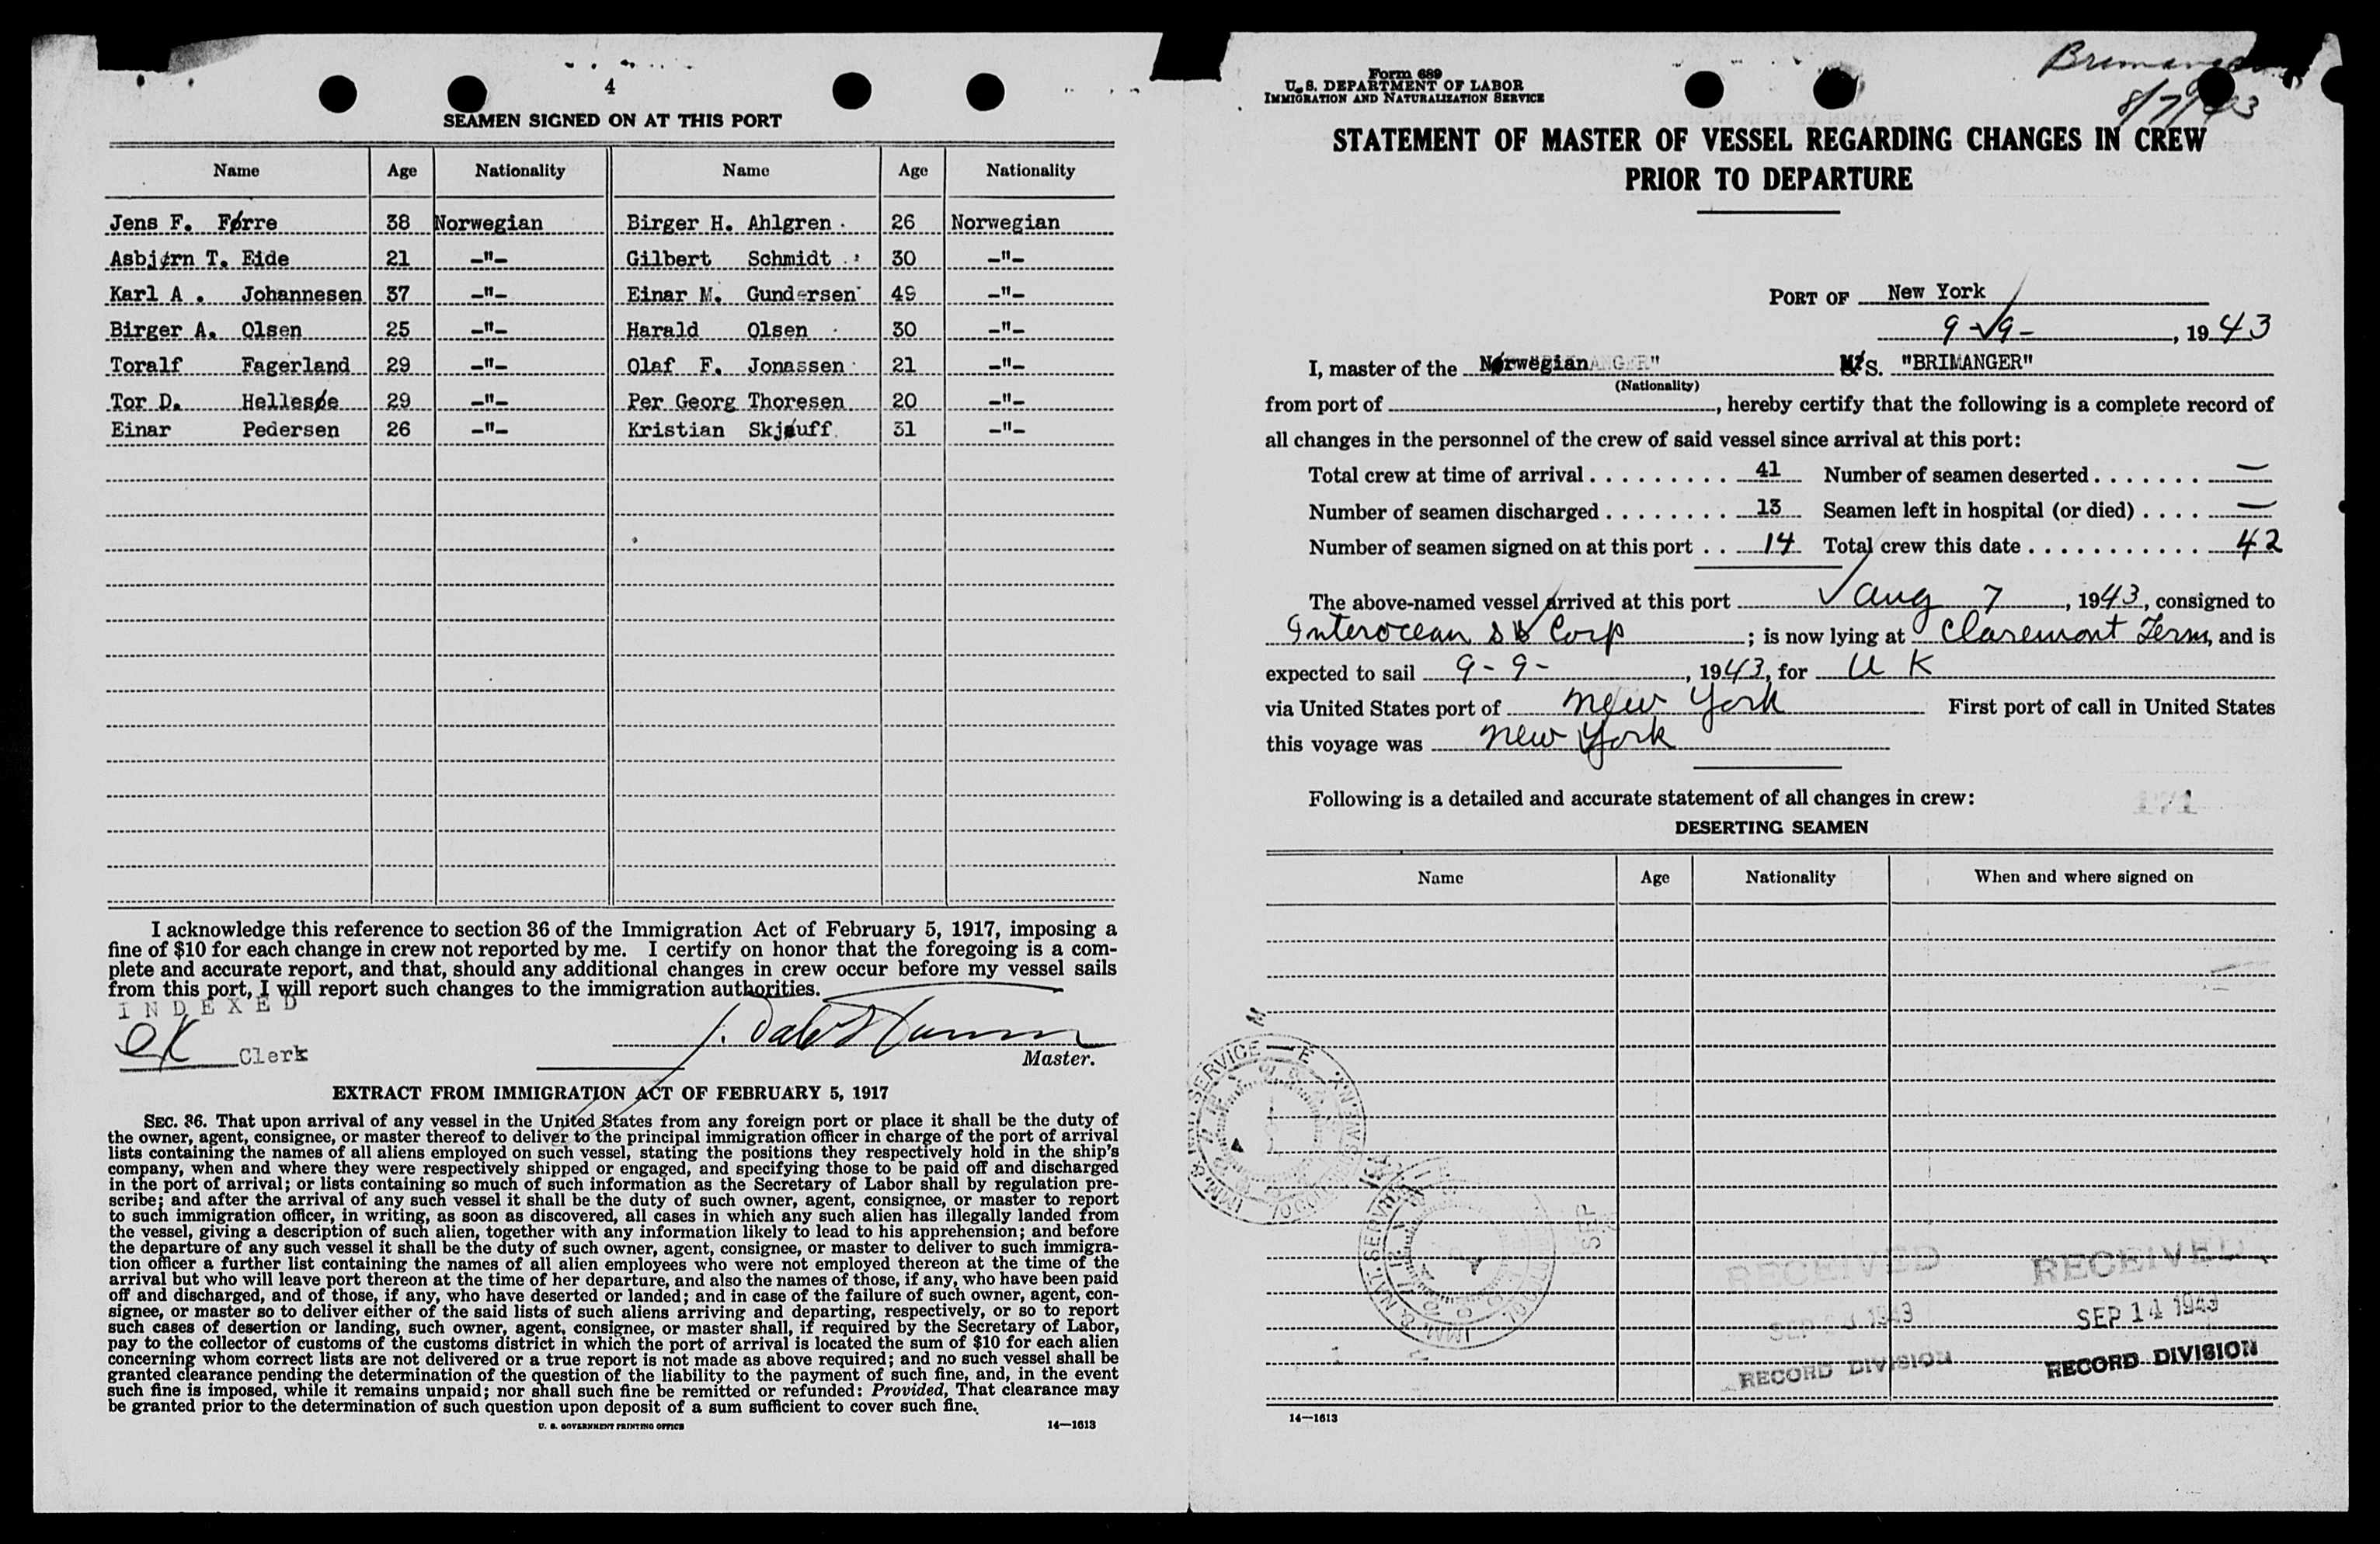 4
SEAMEN SIGNED ON AT THIS PORT
Name Age Nationality Name Age Nationality
Jens F. Førre 38 Norwegian Birger H. Ahlgren 26 Norwegian
Asbjørn T. Eide 21 -"- Gilbert Schmidt 30 -"-
Karl A. Johannesen 37 -"- Einar M. Gundersen 49 -"-
Birger A. Olsen 25 -"- Harald Olsen 30 -"-
Toralf Fagerland 29 -"- Olaf F. Jonassen 21 -"-
Tor D. Hellesøe 29 -"- Per Georg Thoresen 20 -"-
Einar Pedersen 26 -"- Kristian Skjøuff 31 -"-
I acknowledge this reference to section 36 of the Immigration Act of February 5, 1917, imposing a
fine of $10 for each change in crew not reported by me. I certify on honor that the foregoing is a com-
plete and accurate report, and that, should any additional changes in crew occur before my vessel sails
from this port, I will report such changes to the immigration authorities.
INDEXED
Clerk
Master.
EXTRACT FROM IMMIGRATION ACT OF FEBRUARY 5, 1917
SEC. 36. That upon arrival of any vessel in the United States from any foreign port or place it shall be the duty of
the owner, agent, consignee, or master thereof to deliver to the principal immigration officer in charge of the port of arrival
lists containing the names of all aliens employed on such vessel, stating the positions they respectively hold in the ship's
company, when and where they were respectively shipped or engaged, and specifying those to be paid off and discharged
in the port of arrival; or lists containing so much of such information as the Secretary of Labor shall by regulation pre-
scribe; and after the arrival of any such vessel it shall be the duty of such owner, agent, consignee, or master to report
to such immigration officer, in writing, as soon as discovered, all cases in which any such alien has illegally landed from
the vessel, giving a description of such alien, together with any information likely to lead to his apprehension; and before
the departure of any such vessel it shall be the duty of such owner, agent, consignee, or master to deliver to such immigra-
tion officer a further list containing the names of all alien employees who were not employed thereon at the time of the
arrival but who will leave port thereon at the time of her departure, and also the names of those, if any, who have been paid
off and discharged, and of those, if any, who have deserted or landed; and in case of the failure of such owner, agent, con-
signee, or master so to deliver either of the said lists of such aliens arriving and departing, respectively, or so to report
such cases of desertion or landing, such owner, agent, consignee, or master shall, if required by the Secretary of Labor,
pay to the collector of customs of the customs district in which the port of arrival is located the sum of $10 for each alien
concerning whom correct lists are not delivered or a true report is not made as above required; and no such vessel shall be
granted clearance pending the determination of the question of the liability to the payment of such fine, and, in the event
such fine is imposed, while it remains unpaid; nor shall such fine be remitted or refunded: Provided, That clearance may
be granted prior to the determination of such question upon deposit of a sum sufficient to cover such fine.
U. S. GOVERNMENT PRINTING OFFICE 14—1613
Brimanger
8/7/43
Form 689
U. S. DEPARTMENT OF LABOR
IMMIGRATION AND NATURALIZATION SERVICE
STATEMENT OF MASTER OF VESSEL REGARDING CHANGES IN CREW
PRIOR TO DEPARTURE
PORT OF New York
9-9-, 1943
I, master of the Norwegian M/S. "BRIMANGER"
(Nationality)
from port of , hereby certify that the following is a complete record of
all changes in the personnel of the crew of said vessel since arrival at this port:
Total crew at time of arrival 41 Number of seamen deserted —
Number of seamen discharged 13 Seamen left in hospital (or died) —
Number of seamen signed on at this port 14 Total crew this date 42
The above-named vessel arrived at this port Aug 7, 1943, consigned to
Interocean SS Corp; is now lying at Claremont Term, and is
expected to sail 9-9-, 1943, for U K
via United States port of New York First port of call in United States
this voyage was New York
Following is a detailed and accurate statement of all changes in crew:
DESERTING SEAMEN
Name Age Nationality When and where signed on
RECEIVED RECEIVED
SEP 1943 SEP 14 1943
RECORD DIVISION RECORD DIVISION
14—1613